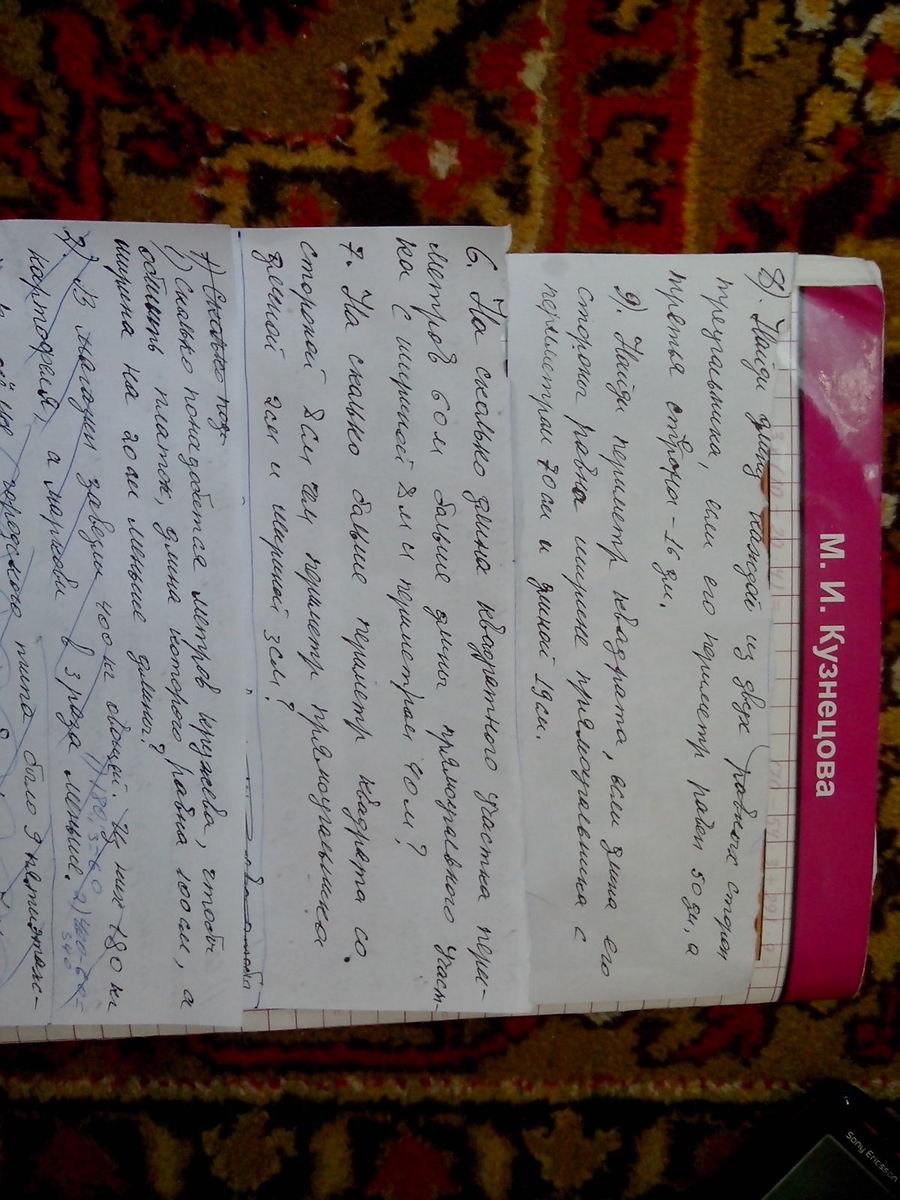 М. И. Кузнецова
8). Найди длину каждой из двух равных сторон
треугольника, если его периметр равен 50 дм, а
третья сторона - 16 дм.
9). Найди периметр квадрата, если длина его
стороны равна ширине прямоугольника с
периметром 70 см и длиной 19 см.
6. На сколько длина квадратного участка пери-
метров 60 м больше длины прямоугольного участ-
ка с шириной 8 м и периметром 40 м?
7. На сколько больше периметр квадрата со
стороной 8 см чем периметр прямоугольника
длиной 9 см и шириной 3 см?
1) Сколько пона-
1) Сколько понадобится метров кружева, чтобы
обшить платок, длина которого равна 100 см, а
ширина на 20 см меньше длины?
2) В магазин завезли 400 кг овощей. Из них 180 кг
картофеля, а моркови в 3 раза меньше.
1) 180:3=60 2)
340
городского типа было 9 пятиэтаж-
Sony Ericsson